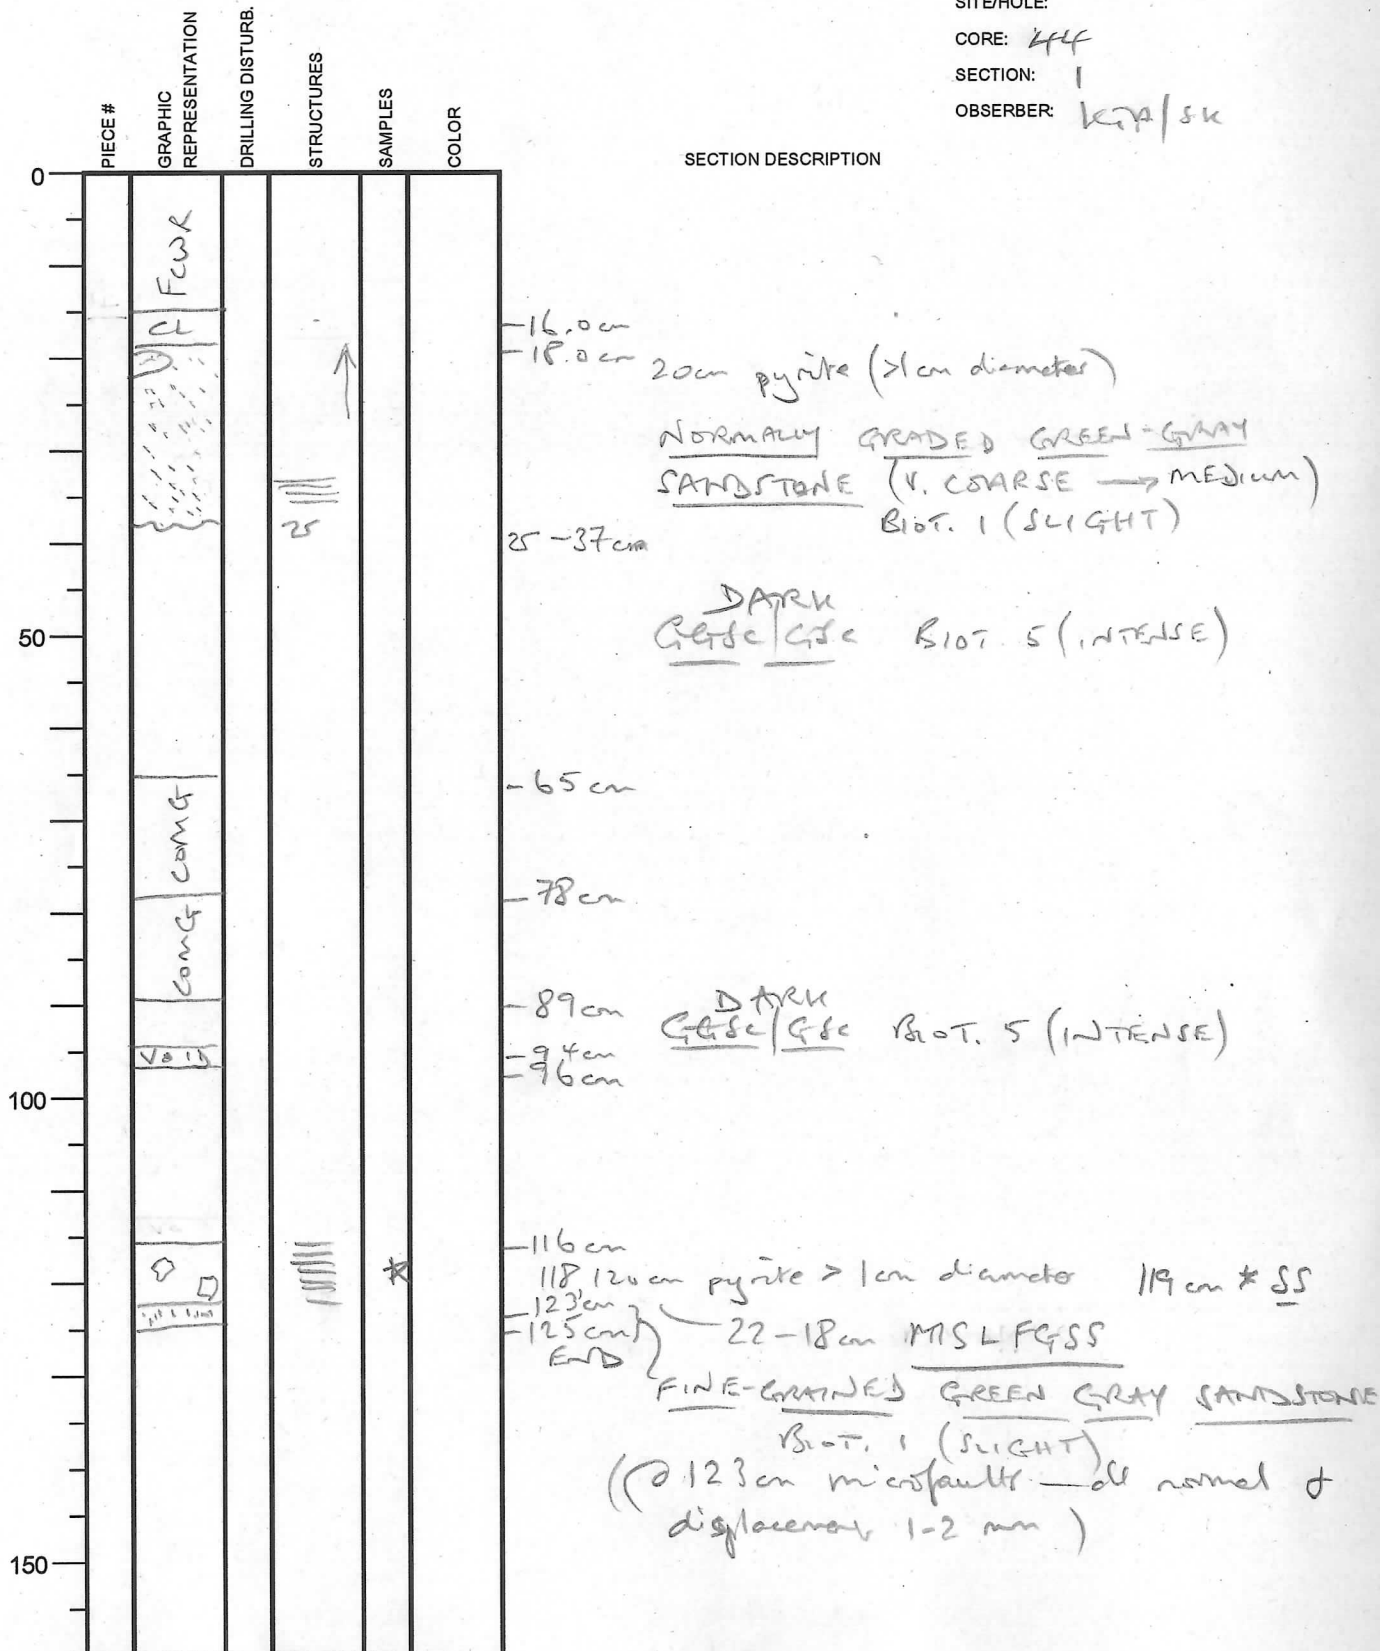 SITE/HOLE:
CORE: 44
SECTION: 1
OBSERBER: KGA/SK
PIECE #
GRAPHIC REPRESENTATION
DRILLING DISTURB.
STRUCTURES
SAMPLES
COLOR
SECTION DESCRIPTION
0
FCWR
CL
-16.0cm
-18.0cm
20cm pyrite (>1cm diameter)
NORMALLY GRADED GREEN-GRAY
SANDSTONE (V. COARSE → MEDIUM)
BIOT. 1 (SLIGHT)
25
25-37cm
DARK
50
GGSC/GSC BIOT. 5 (INTENSE)
-65cm
COMG
-78cm
COMG
-89cm
DARK
GGSC/GSC BIOT. 5 (INTENSE)
VOID
-94cm
-96cm
100
-116cm
118,120cm pyrite > 1cm diameter 119cm * SS
-123cm
-125cm
22-18cm MSLFGSS
END
FINE-GRAINED GREEN GRAY SANDSTONE
BIOT. 1 (SLIGHT)
(@ 123cm microfaults — all normal &
displacement 1-2 mm)
150